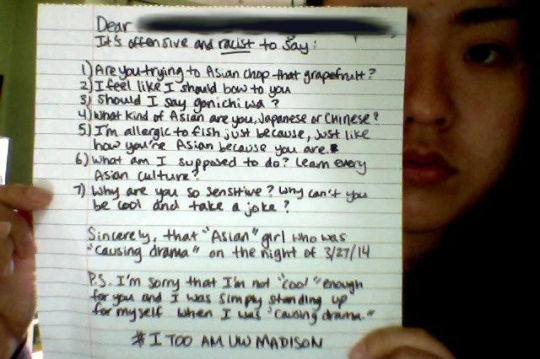 Dear
It's offensive and racist to say:
1) Are you trying to Asian chop that grapefruit?
2) I feel like I should bow to you
3) Should I say gonichi wa?
4) What kind of Asian are you, Japanese or Chinese?
5) I'm allergic to fish just because, just like
how you're Asian because you are.
6) What am I supposed to do? Learn every
Asian culture?
7) Why are you so sensitive? Why can't you
be cool and take a joke?
Sincerely, that "Asian" girl who was
"causing drama" on the night of 3/27/14
P.S. I'm sorry that I'm not "cool" enough
for you and I was simply standing up
for myself when I was "causing drama."
#I TOO AM UW MADISON